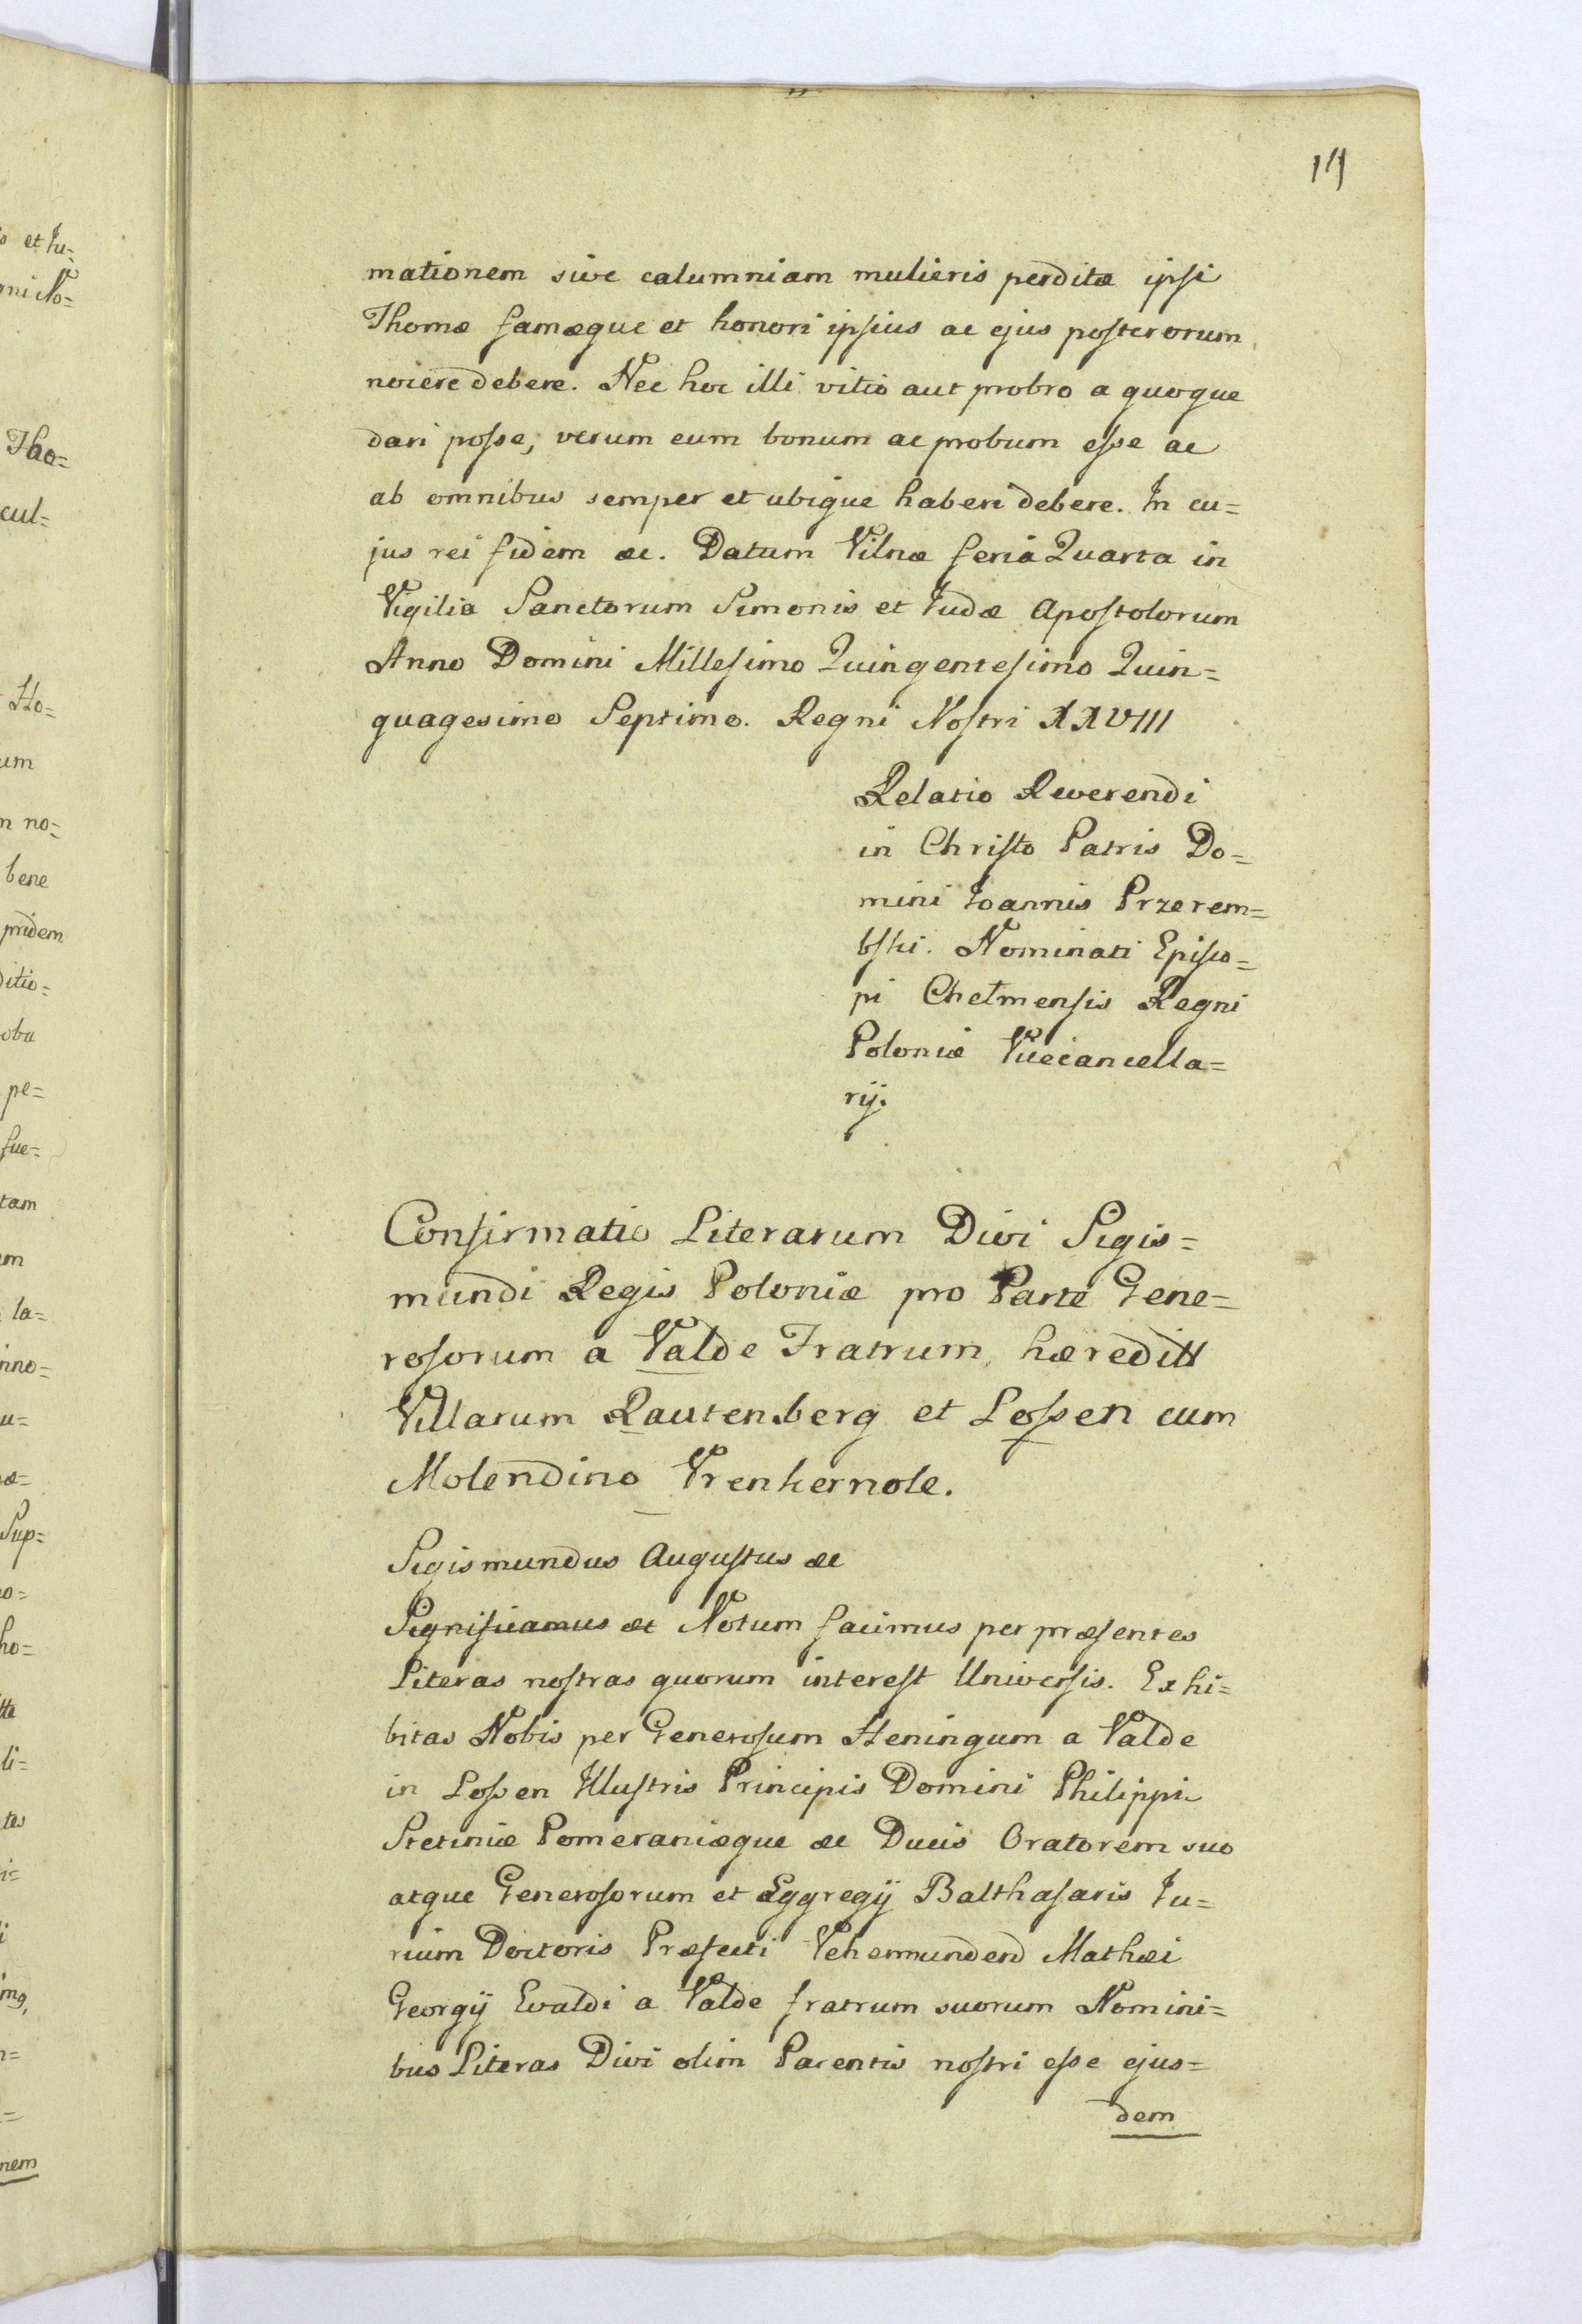 14
mationem sive calumniam mulieris perditæ ipsi
Thomæ famæque et honori ipsius ac ejus posterorum
nocere debere. Nec hoc illi vitio aut probro a quoque
dari posse, verum eum bonum ac probum esse ac
ab omnibus semper et ubique haberi debere. In cu=
jus rei fidem &c. Datum Vilnæ feria Quarta in
Vigilia Sanctorum Simonis et Judæ Apostolorum
Anno Domini Millesimo Quingentesimo Quin=
quagesimo Septimo. Regni Nostri XXVIII
Relatio Reverendi
in Christo Patris Do=
mini Joannis Przerem=
bski. Nominati Episco=
pi Chełmensis Regni
Poloniæ Vicecancella=
rij.
Confirmatio Literarum Divi Sigis=
mundi Regis Poloniæ pro Parte Gene=
rosorum a Valde Fratrum, hæreditt
Villarum Rautenberg et Lossen cum
Molendino Vrenkernole.
Sigismundus Augustus &c
Significamus &c Notum facimus per præsentes
Literas nostras quorum interest Universis. Exhi=
bitas Nobis per Generosum Heningum a Valde
in Lossen Illustris Principis Domini Philippi
Stetiniæ Pomeraniæque &c Ducis Oratorem suo
atque Generosorum et Eggregij Balthasaris Ju=
rium Doctoris Præfecti Vehermunden Mathæi
Georgij Evaldi a Valde fratrum suorum Nomini=
bus Literas Divi olim Parentis nostri esse ejus=
dem
et Ju=
Tho=
cul=
Ho=
um
no=
bene
pridem
ditio=
pe=
fue=
tam
la=
inno=
Sup=
ho=
li=
tes
nem